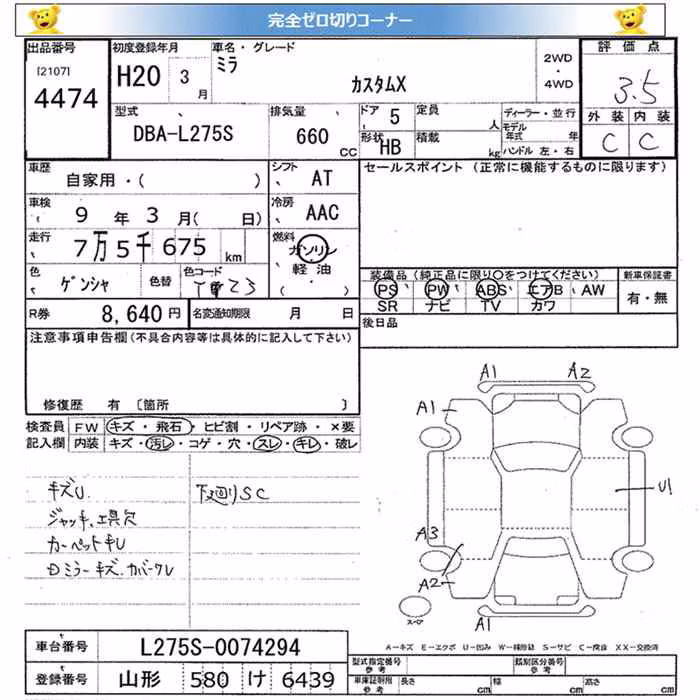 完全ゼロ切りコーナー
出品番号 初度登録年月 車名・グレード 評価点
[2107] H20 3月 ミラ 2WD・4WD 3.5
4474 カスタムX
型式 排気量 ドア 5 定員 人 ディーラー・並行 外装 内装
モデル年式 年
DBA-L275S 660 CC 形状 HB 積載 kg ハンドル 左・右 C C
車歴 自家用・( ) シフト AT セールスポイント (正常に機能するものに限ります)
車検 9年3月( 日) 冷房 AAC
走行 7万5千675km 燃料 ガソリン
軽油
( ・ )
色 ゲンシャ 色替 色コード 装備品 (純正品に限り〇をつけてください) 新車保証書
PS PW ABS エアB AW 有・無
SR ナビ TV カワ
R券 8,640円 名変通知期限 月 日 後日品
注意事項申告欄(不具合内容等は具体的に記入して下さい)
修復歴 有 [箇所 ]
検査員 FW キズ・飛石・ヒビ割・リペア跡・×要
記入欄 内装 キズ・汚レ・コゲ・穴・スレ・キレ・破レ
A1 A2
A1
キズU 下廻りSC
U1
ジャッキ、工具欠
カーペットキU
A3
Dミラーキズ.カバークU
A2
スペア A1
A-キズ E-エクボ U-凹み W-補修跡 S-サビ C-腐食 XX-交換済
車台番号 L275S-0074294
型式指定番号 参考 類別区分番号 参考
登録番号 山形 580 け 6439
車庫証明用 参考 長さ cm 幅 cm 高さ cm